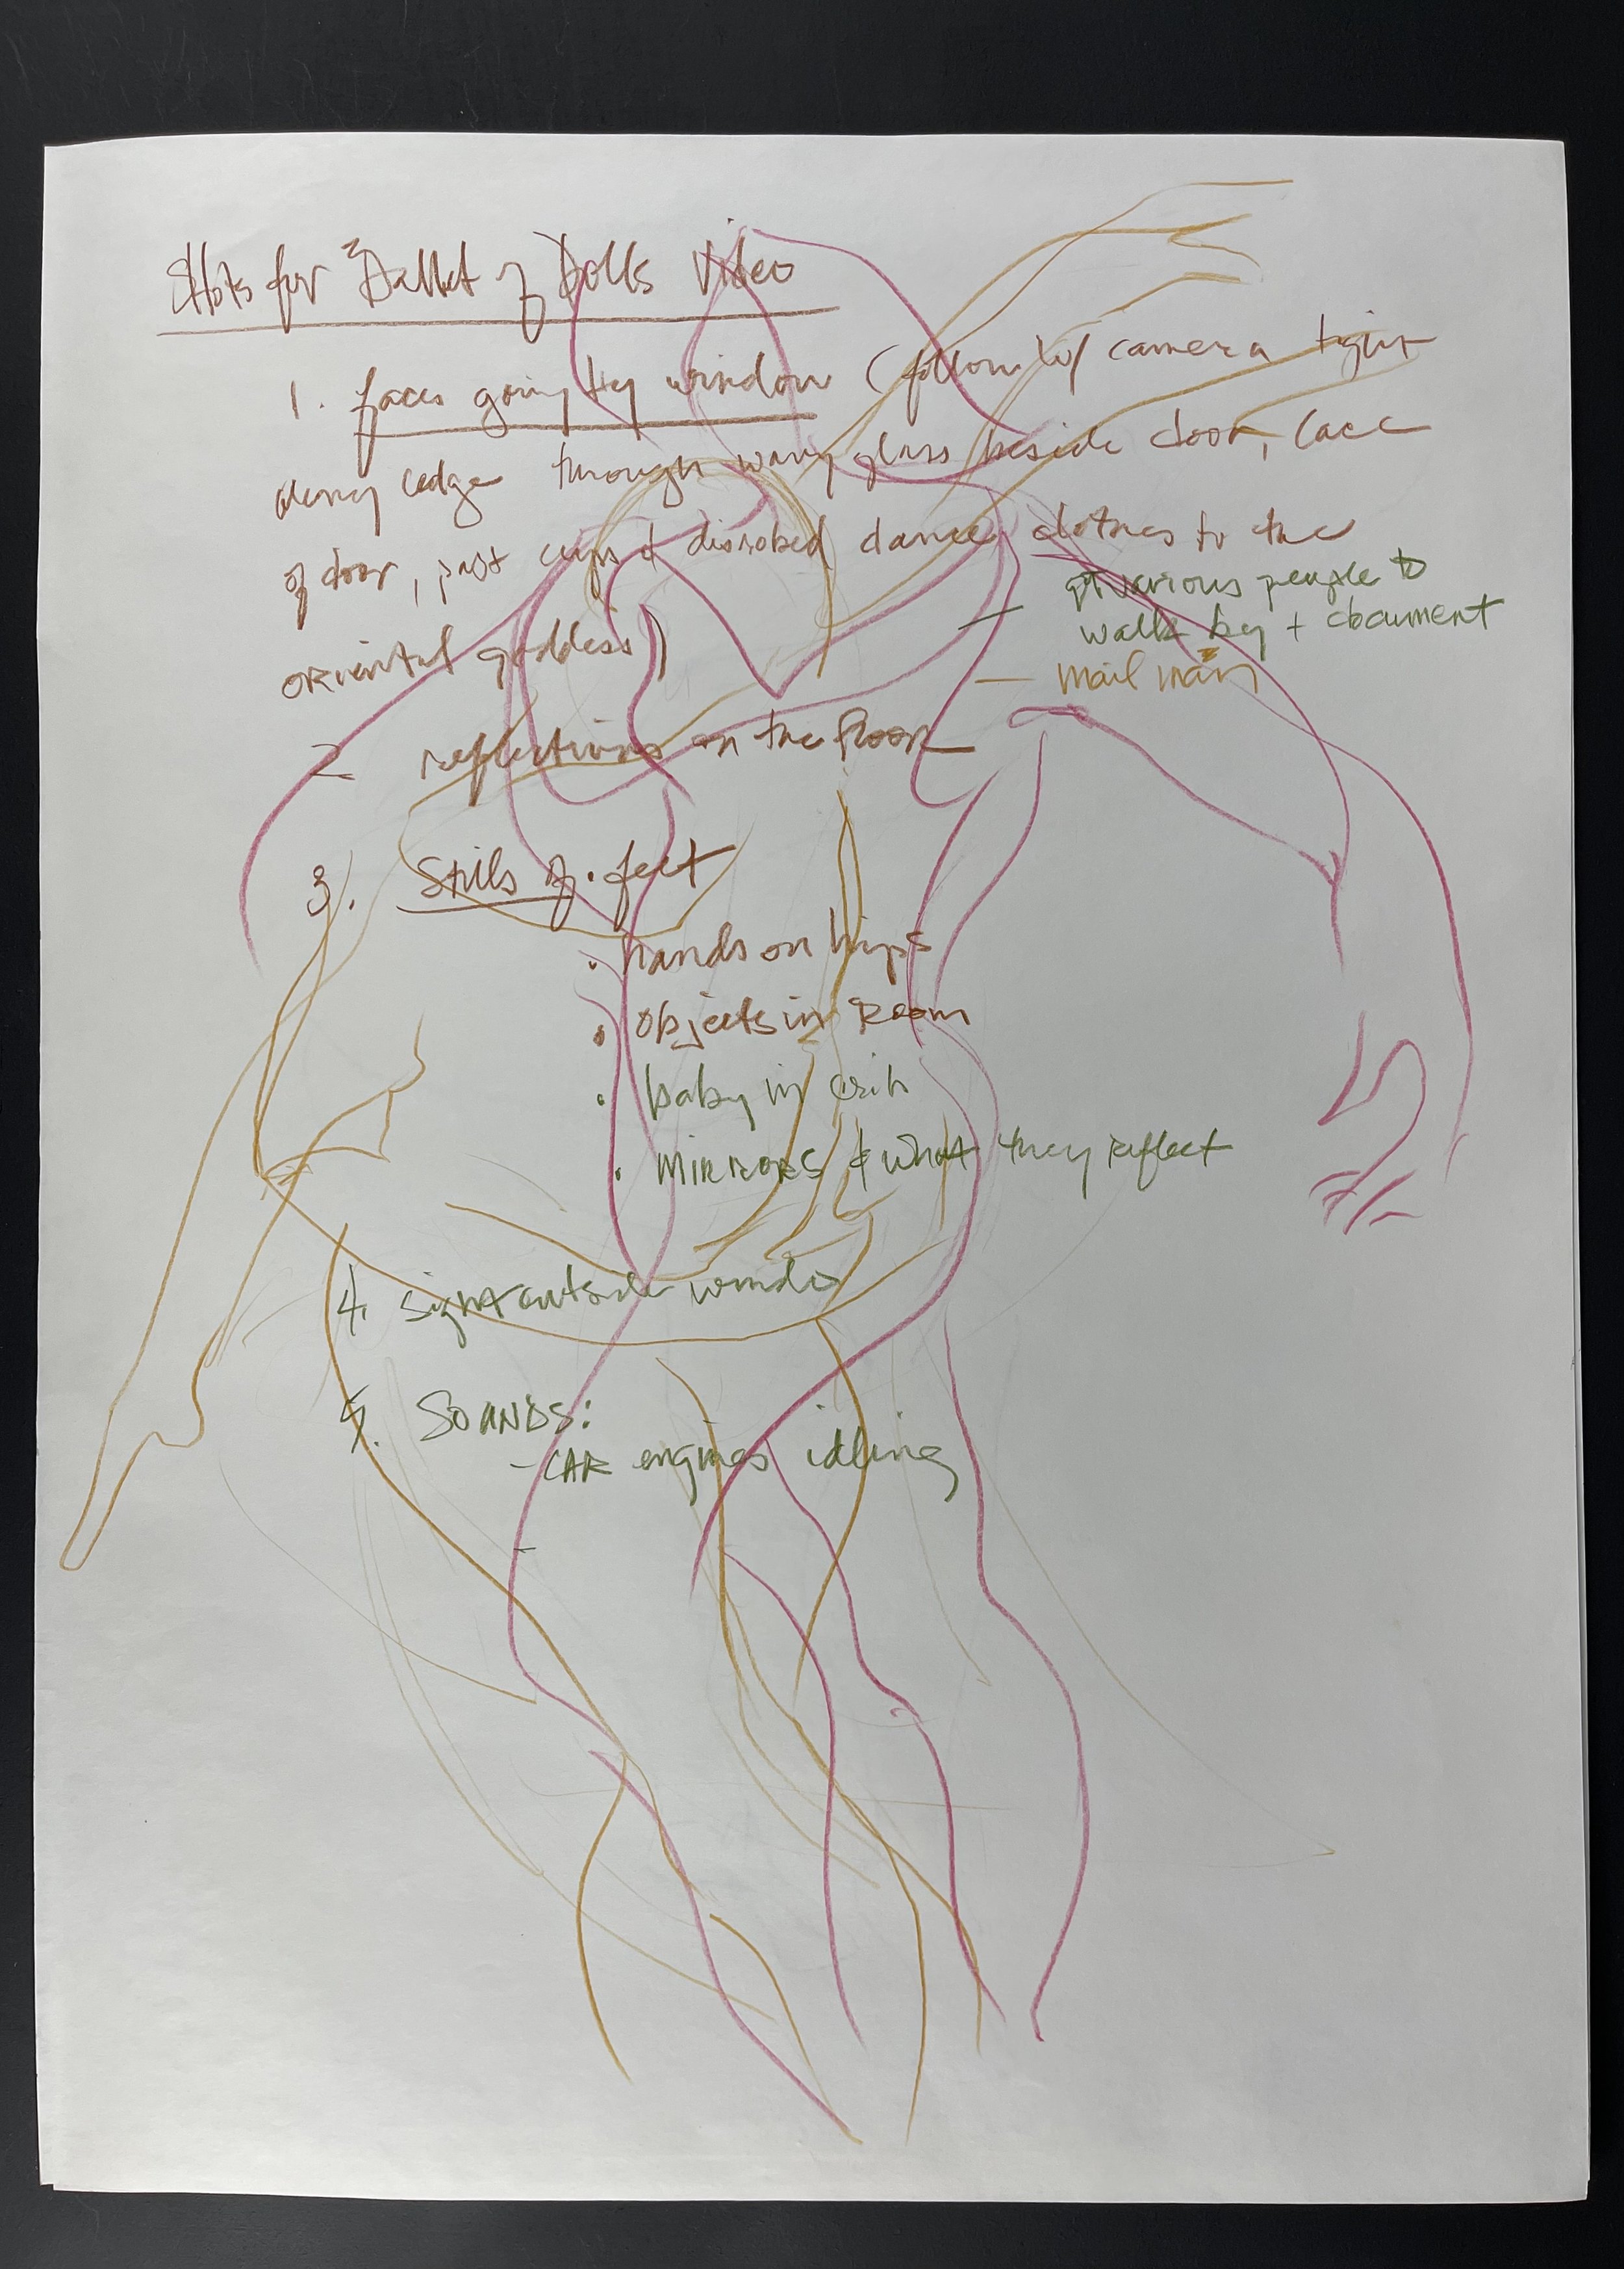 Shots for Ballet of Dolls Video
1. faces going by window (follow w/ camera tight
along ledge through wavy glass beside door, lace
of door, past cups & disrobed dance clothes to the
oriental goddess)
— get various people to
walk by + document
— mail man
2 reflections on the floor —
3. Stills of · feet
· hands on hips
· objects in Room
· baby in crib
· MIRRORS & what they reflect
4. sign outside window
5. SOUNDS:
- CAR engines idling